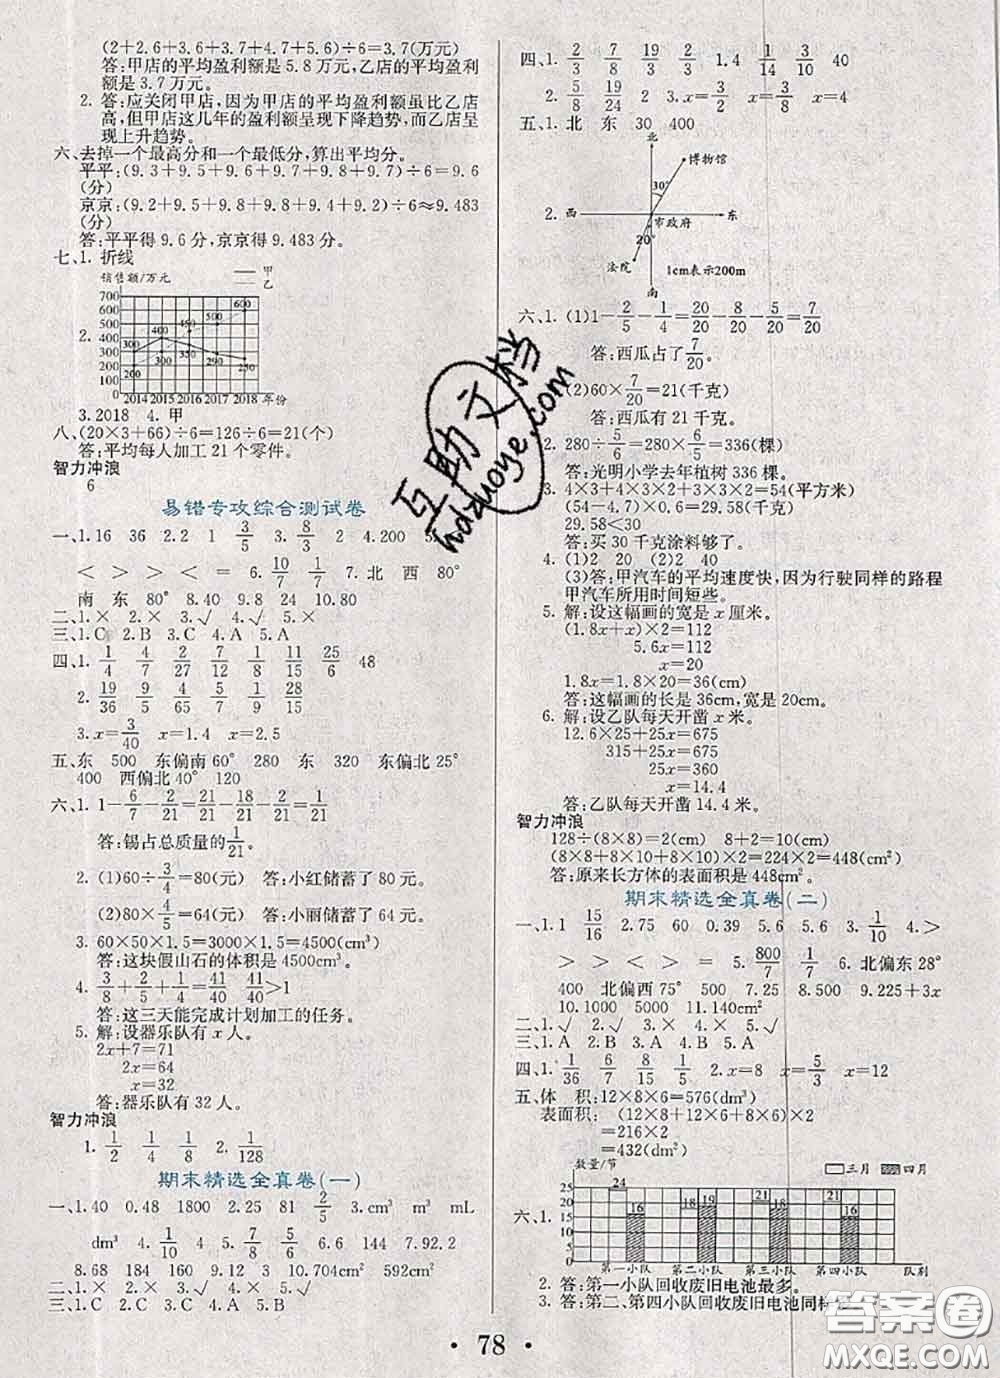 (2+2.6+3.6+3.7+4.7+5.6)÷6=3.7(万元)
答:甲店的平均盈利额是 5.8 万元,乙店的平均盈利
额是 3.7 万元。
2. 答:应关闭甲店,因为甲店的平均盈利额虽比乙店
高,但甲店这几年的盈利额呈现下降趋势,而乙店呈
现上升趋势。
六、去掉一个最高分和一个最低分,算出平均分。
平平:(9.3+9.5+9.6+9.7+9.8+9.7)÷6=9.6
(分)
京京:(9.2+9.5+9.8+9.8+9.4+9.2)÷6≈9.483
(分)
答:平平得 9.6 分,京京得 9.483 分。
七、1. 折线
销售额/万元 甲 乙
2.
700
600
500
400
300
200
100
0
200 300 400 300 450 350 500 290 600 250
2014 2015 2016 2017 2018 年份
3. 2018 4. 甲
八、(20×3+66)÷6=126÷6=21(个)
答:平均每人加工 21 个零件。
智力冲浪
6
易错专攻综合测试卷
一、1.16 36 2.2 1 3/5 3. 8/3 2 4.200
< > > < = 6. 10/7 1/7 7. 北 西 80°
南 东 80° 8.40 9.8 24 10.20
二、1.× 2.× 3.√ 4.√ 5.×
三、1.C 2.B 3.C 4.A 5.A
四、1. 1/4 4/7 2/27 7/12 1/8 11/15 25/6 48
2. 19/36 9/65 5/4 1/9 28/15
3. x=3/40 x=1.4 x=2.5
五、东 500 东偏南 60° 280 东 320 东偏北 25°
400 西偏北 40° 120
六、1. 1-6/7-2/21=21/21-18/21-2/21=1/21
答:锡占总质量的1/21。
2. (1)60÷3/4=80(元) 答:小红储蓄了 80 元。
(2)80×4/5=64(元) 答:小丽储蓄了 64 元。
3. 60×50×1.5=3000×1.5=4500(cm³)
答:这块假山石的体积是 4500cm³。
4. 3/8+2/5+1/4=41/40 41/40>1
答:这三天能完成计划加工的任务。
5. 解:设器乐队有 x 人。
2x+7=71
2x=64
x=32
答:器乐队有 32 人。
智力冲浪
1. 1/2 1/4 1/8 2. 1/128
期末精选全真卷(一)
一、1.40 0.48 1800 2.25 81 2/5 3.cm³ m³ mL
dm³ 4. 1/10 4 5. 7/8 5/6 6.6 144 7.92.2
8.68 184 160 9.12 3 10.704cm² 592cm²
二、1.× 2.× 3.√ 4.× 5.√
三、1.C 2.A 3.C 4.B 5.C
四、1. 2/3 7/8 19/3 2/3 1.4 1/14 3/10 40
2. 5/8 19/24 2 3. x=3/2 x=3/8 x=4
五、1. 北 东 30 400
2.
北
博物馆
30°
西 东
市政府
20°
法院
1cm表示200m
南
六、1. (1)1-2/5-1/4=20/20-8/20-5/20=7/20
答:西瓜占了7/20。
(2)60×7/20=21(千克)
答:西瓜有 21 千克。
2. 280÷5/6=280×6/5=336(棵)
答:光明小学去年植树 336 棵。
3. 4×3+4×3×2+3×3×2=54(平方米)
(54-4.7)×0.6=29.58(千克)
29.58<30
答:买 30 千克涂料够了。
4. (1)2 20 (2)2 40
(3)答:甲汽车的平均速度快,因为行驶同样的路程
甲汽车所用时间短些。
5. 解:设这幅画的宽是 x 厘米。
(1.8x+x)×2=112
5.6x=112
x=20
1.8x=1.8×20=36(cm)
答:这幅画的长是 36cm,宽是 20cm。
6. 解:设乙队每天开凿 x 米。
12.6×25+25x=675
315+25x=675
25x=360
x=14.4
答:乙队每天开凿 14.4 米。
智力冲浪
128÷(8×8)=2(cm) 8+2=10(cm)
(8×8+8×10+8×10)×2=224×2=448(cm²)
答:原来长方体的表面积是 448cm²。
期末精选全真卷(二)
一、1.1 15/16 2.75 60 0.39 5.6 5.6 3. 1/10 4.>
> > < > 5. 800/7 1/7 6. 北偏东 28°
400 北偏西 75° 500 7.25 8.500 9.225+3x
10.1000 5000 11.140cm²
二、1.√ 2.√ 3.× 4.× 5.√
三、1.A 2.B 3.C 4.B 5.A
四、1. 1/36 6/7 8/15 1/5 2. x=8 x=5/3 x=12
五、体 积:12×8×6=576(dm³)
表面积:(12×8+12×6+8×6)×2
=216×2
=432(dm²)
六、1.
数量/节 三月 四月
25
20
15
10
5
0
24 16 18 19 21 16 21 16
第一小队 第二小队 第三小队 第四小队 队别
2. 答:第一小队回收废旧电池最多。
3. 答:第二、第四小队回收废旧电池同样
互助文档
hdzuoye.com
答案圈
MXQE.COM
78